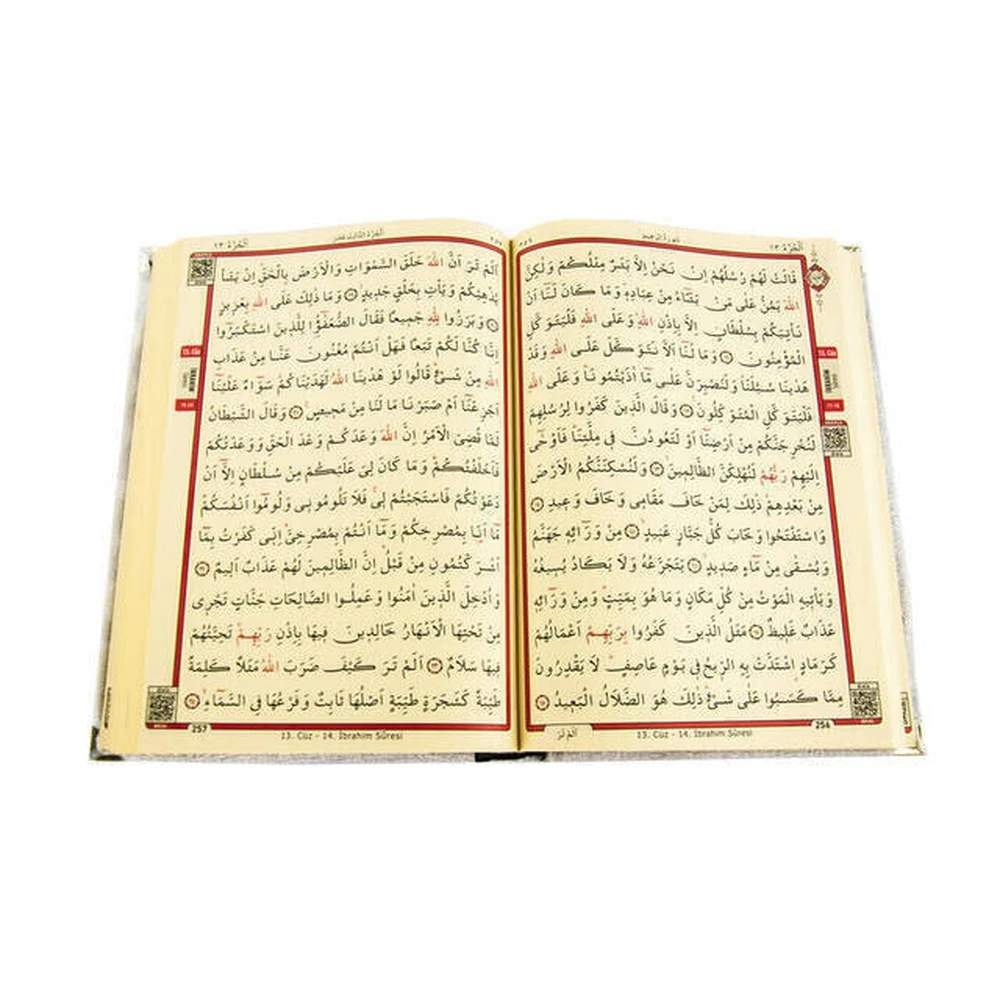 الجزء ١٣
قَالَتْ لَهُمْ رُسُلُهُمْ اِنْ نَحْنُ اِلَّا بَشَرٌ مِثْلُكُمْ وَلٰكِنَّ
اللّٰهَ يَمُنُّ عَلٰى مَنْ يَشَٓاءُ مِنْ عِبَادِهٖ وَمَا كَانَ لَنَٓا اَنْ
نَأْتِيَكُمْ بِسُلْطَانٍ اِلَّا بِاِذْنِ اللّٰهِ وَعَلَى اللّٰهِ فَلْيَتَوَكَّلِ
الْمُؤْمِنُونَ ۝ وَمَا لَنَٓا اَلَّا نَتَوَكَّلَ عَلَى اللّٰهِ وَقَدْ
هَدٰينَا سُبُلَنَا وَلَنَصْبِرَنَّ عَلٰى مَٓا اٰذَيْتُمُونَا وَعَلَى اللّٰهِ
فَلْيَتَوَكَّلِ الْمُتَوَكِّلُونَ ۝ وَقَالَ الَّذِينَ كَفَرُوا لِرُسُلِهِمْ
لَنُخْرِجَنَّكُمْ مِنْ اَرْضِنَٓا اَوْ لَتَعُودُنَّ فِى مِلَّتِنَا فَاَوْحٰٓى
اِلَيْهِمْ رَبُّهُمْ لَنُهْلِكَنَّ الظَّالِمِينَ ۝ وَلَنُسْكِنَنَّكُمُ الْاَرْضَ
مِنْ بَعْدِهِمْ ذٰلِكَ لِمَنْ خَافَ مَقَامِى وَخَافَ وَعِيدِ ۝
وَاسْتَفْتَحُوا وَخَابَ كُلُّ جَبَّارٍ عَنِيدٍ ۝ مِنْ وَرَٓائِهٖ جَهَنَّمُ
وَيُسْقٰى مِنْ مَٓاءٍ صَدِيدٍ ۝ يَتَجَرَّعُهُ وَلَا يَكَادُ يُسِيغُهُ
وَيَأْتِيهِ الْمَوْتُ مِنْ كُلِّ مَكَانٍ وَمَا هُوَ بِمَيِّتٍ وَمِنْ وَرَٓائِهٖ
عَذَابٌ غَلِيظٌ ۝ مَثَلُ الَّذِينَ كَفَرُوا بِرَبِّهِمْ اَعْمَالُهُمْ
كَرَمَادٍ اشْتَدَّتْ بِهِ الرِّيحُ فِى يَوْمٍ عَاصِفٍ لَا يَقْدِرُونَ
مِمَّا كَسَبُوا عَلٰى شَىْءٍ ذٰلِكَ هُوَ الضَّلَالُ الْبَعِيدُ ۝
13. Cüz - 14. İbrahim Sûresi
256
اَلَمْ تَرَ
الجزء ١٣
اَلَمْ تَرَ اَنَّ اللّٰهَ خَلَقَ السَّمٰوَاتِ وَالْاَرْضَ بِالْحَقِّ اِنْ يَشَأْ
يُذْهِبْكُمْ وَيَأْتِ بِخَلْقٍ جَدِيدٍ ۝ وَمَا ذٰلِكَ عَلَى اللّٰهِ بِعَزِيزٍ
۝ وَبَرَزُوا لِلّٰهِ جَمِيعًا فَقَالَ الضُّعَفٰٓؤُا لِلَّذِينَ اسْتَكْبَرُٓوا
اِنَّا كُنَّا لَكُمْ تَبَعًا فَهَلْ اَنْتُمْ مُغْنُونَ عَنَّا مِنْ عَذَابِ
اللّٰهِ مِنْ شَىْءٍ قَالُوا لَوْ هَدٰينَا اللّٰهُ لَهَدَيْنَاكُمْ سَوَٓاءٌ عَلَيْنَٓا
اَجَزِعْنَٓا اَمْ صَبَرْنَا مَا لَنَا مِنْ مَحِيصٍ ۝ وَقَالَ الشَّيْطَانُ
لَمَّا قُضِىَ الْاَمْرُ اِنَّ اللّٰهَ وَعَدَكُمْ وَعْدَ الْحَقِّ وَوَعَدْتُكُمْ
فَاَخْلَفْتُكُمْ وَمَا كَانَ لِىَ عَلَيْكُمْ مِنْ سُلْطَانٍ اِلَّٓا اَنْ
دَعَوْتُكُمْ فَاسْتَجَبْتُمْ لِى فَلَا تَلُومُونِى وَلُومُٓوا اَنْفُسَكُمْ
مَٓا اَنَا بِمُصْرِخِكُمْ وَمَٓا اَنْتُمْ بِمُصْرِخِىَّ اِنِّى كَفَرْتُ بِمَٓا
اَشْرَكْتُمُونِ مِنْ قَبْلُ اِنَّ الظَّالِمِينَ لَهُمْ عَذَابٌ اَلِيمٌ ۝
وَاُدْخِلَ الَّذِينَ اٰمَنُوا وَعَمِلُوا الصَّالِحَاتِ جَنَّاتٍ تَجْرِى
مِنْ تَحْتِهَا الْاَنْهَارُ خَالِدِينَ فِيهَا بِاِذْنِ رَبِّهِمْ تَحِيَّتُهُمْ
فِيهَا سَلَامٌ ۝ اَلَمْ تَرَ كَيْفَ ضَرَبَ اللّٰهُ مَثَلًا كَلِمَةً
طَيِّبَةً كَشَجَرَةٍ طَيِّبَةٍ اَصْلُهَا ثَابِتٌ وَفَرْعُهَا فِى السَّمَٓاءِ ۝
257
13. Cüz - 14. İbrahim Sûresi